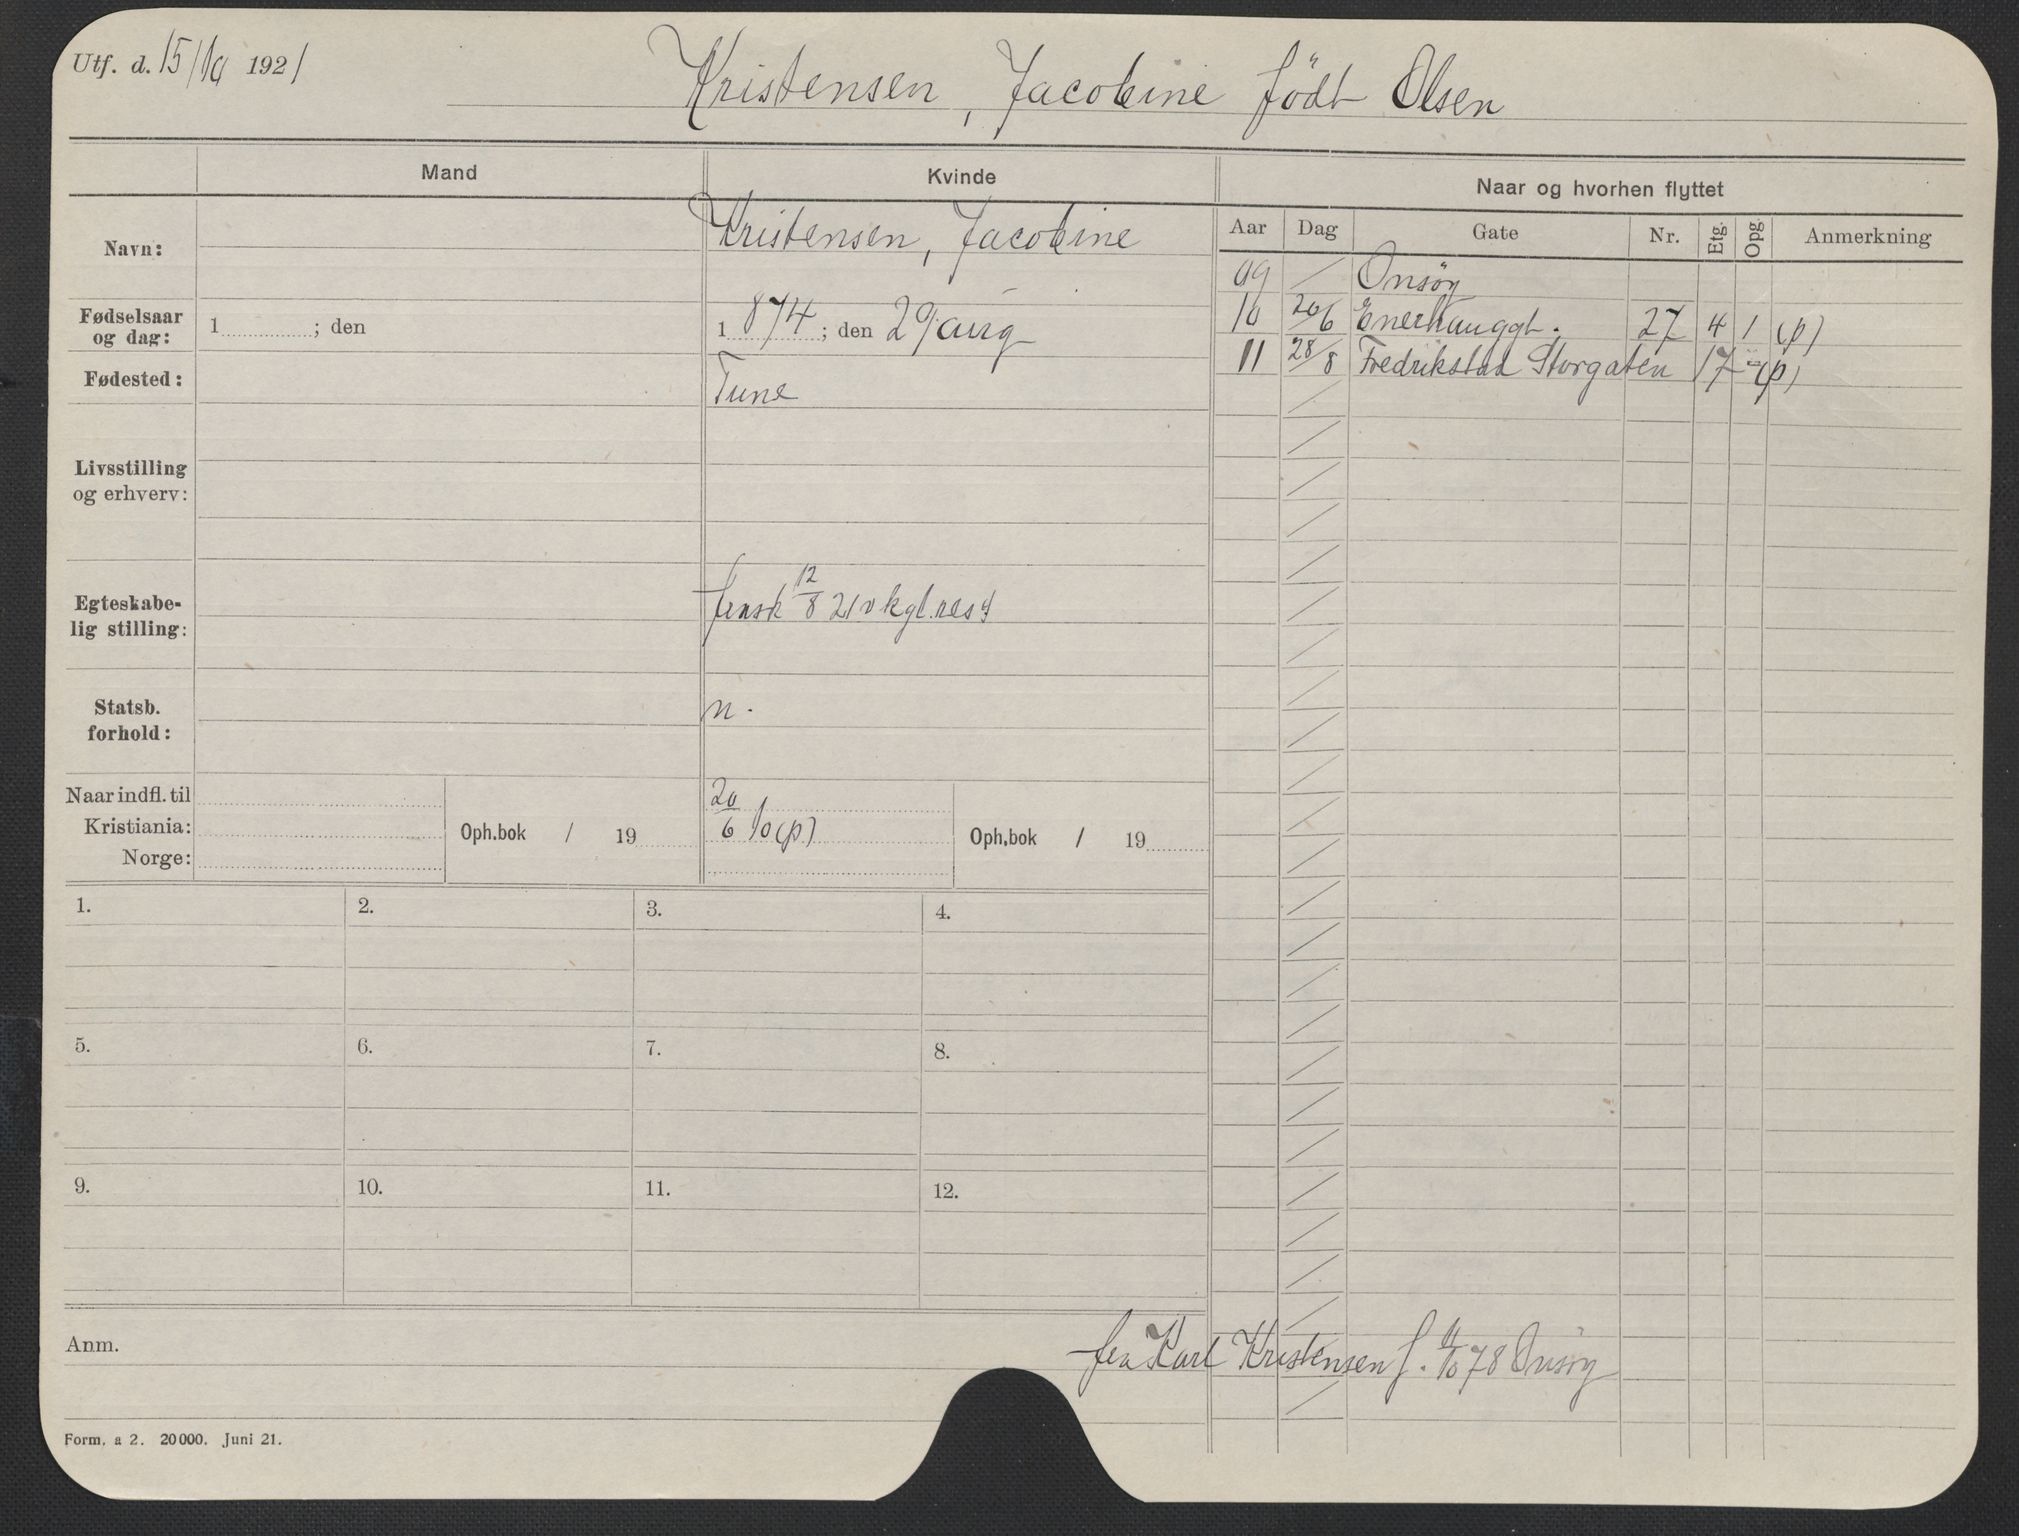 Utf. d. 15/10 1921
Kristensen, Jacobine født Olsen
Mand
Kvinde
Naar og hvorhen flyttet
Navn:
Kristensen, Jacobine
Aar Dag Gate Nr. Etg. Opg. Anmerkning
09 / Onsöy
10 20/6 Enerhauggt. 27 4 1 (p)
11 28/8 Fredrikstad Storgaten 17 (p)
Fødselsaar
og dag:
1 ; den
1 874 ; den 29 aug
Fødested:
Tune
Livsstilling
og erhverv:
Egteskabe-
lig stilling:
frask 12/8 21 v kgl. res
Statsb.
forhold:
n.
Naar indfl. til
Kristiania:
Norge:
Oph.bok / 19
20/6 10 (p)
Oph.bok / 19
1. 2. 3. 4.
5. 6. 7. 8.
9. 10. 11. 12.
Anm.
fra Karl Kristensen f. 78 Onsöy
Form. a 2. 20000. Juni 21.